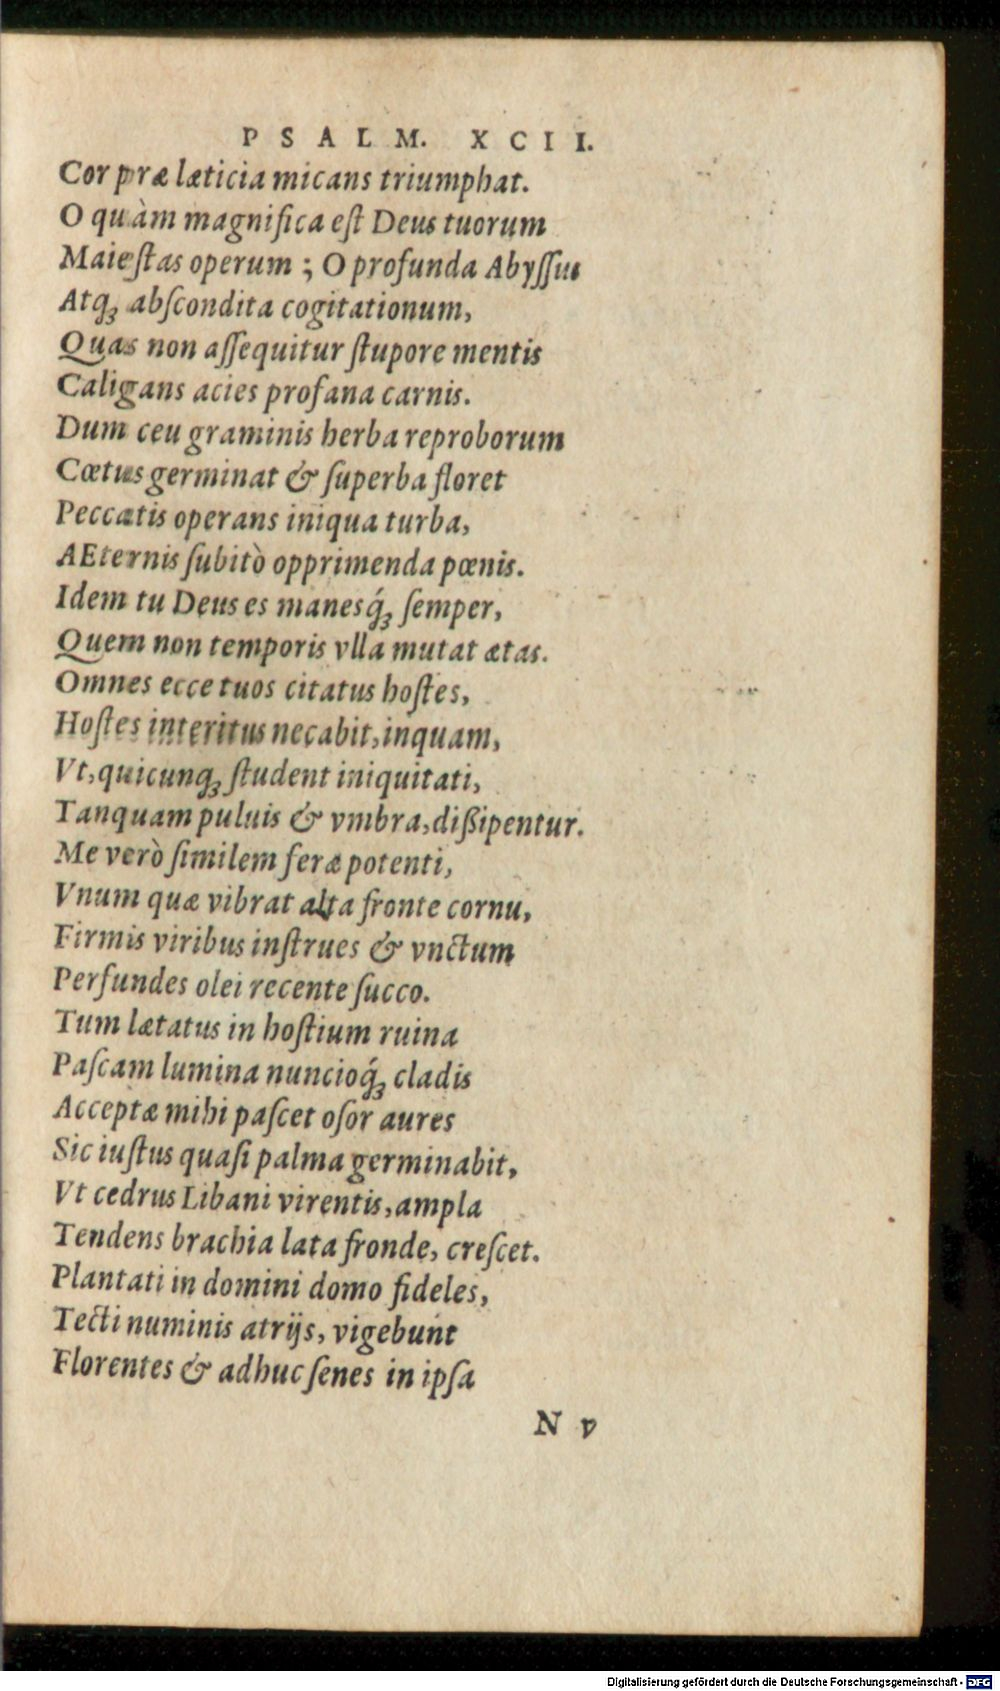 PSALM. XCII.
Cor præ læticia micans triumphat.
O quàm magnifica eſt Deus tuorum
Maieſtas operum; O profunda Abyſſus
Atqꝫ abſcondita cogitationum,
Quas non aſſequitur ſtupore mentis
Caligans acies profana carnis.
Dum ceu graminis herba reproborum
Cœtus germinat & ſuperba floret
Peccatis operans iniqua turba,
AEternis ſubitò opprimenda pœnis.
Idem tu Deus es manesq́ꝫ ſemper,
Quem non temporis vlla mutat ætas.
Omnes ecce tuos citatus hoſtes,
Hoſtes interitus necabit, inquam,
Vt, quicunqꝫ ſtudent iniquitati,
Tanquam puluis & vmbra, dißipentur.
Me verò ſimilem feræ potenti,
Vnum quæ vibrat alta fronte cornu,
Firmis viribus inſtrues & vnctum
Perfundes olei recente ſucco.
Tum lætatus in hoſtium ruina
Paſcam lumina nuncioq́ꝫ cladis
Acceptæ mihi paſcet oſor aures
Sic iuſtus quaſi palma germinabit,
Vt cedrus Libani virentis, ampla
Tendens brachia lata fronde, creſcet.
Plantati in domini domo fideles,
Tecti numinis atrijs, vigebunt
Florentes & adhuc ſenes in ipſa
N v
Digitalisierung gefördert durch die Deutsche Forschungsgemeinschaft - DFG